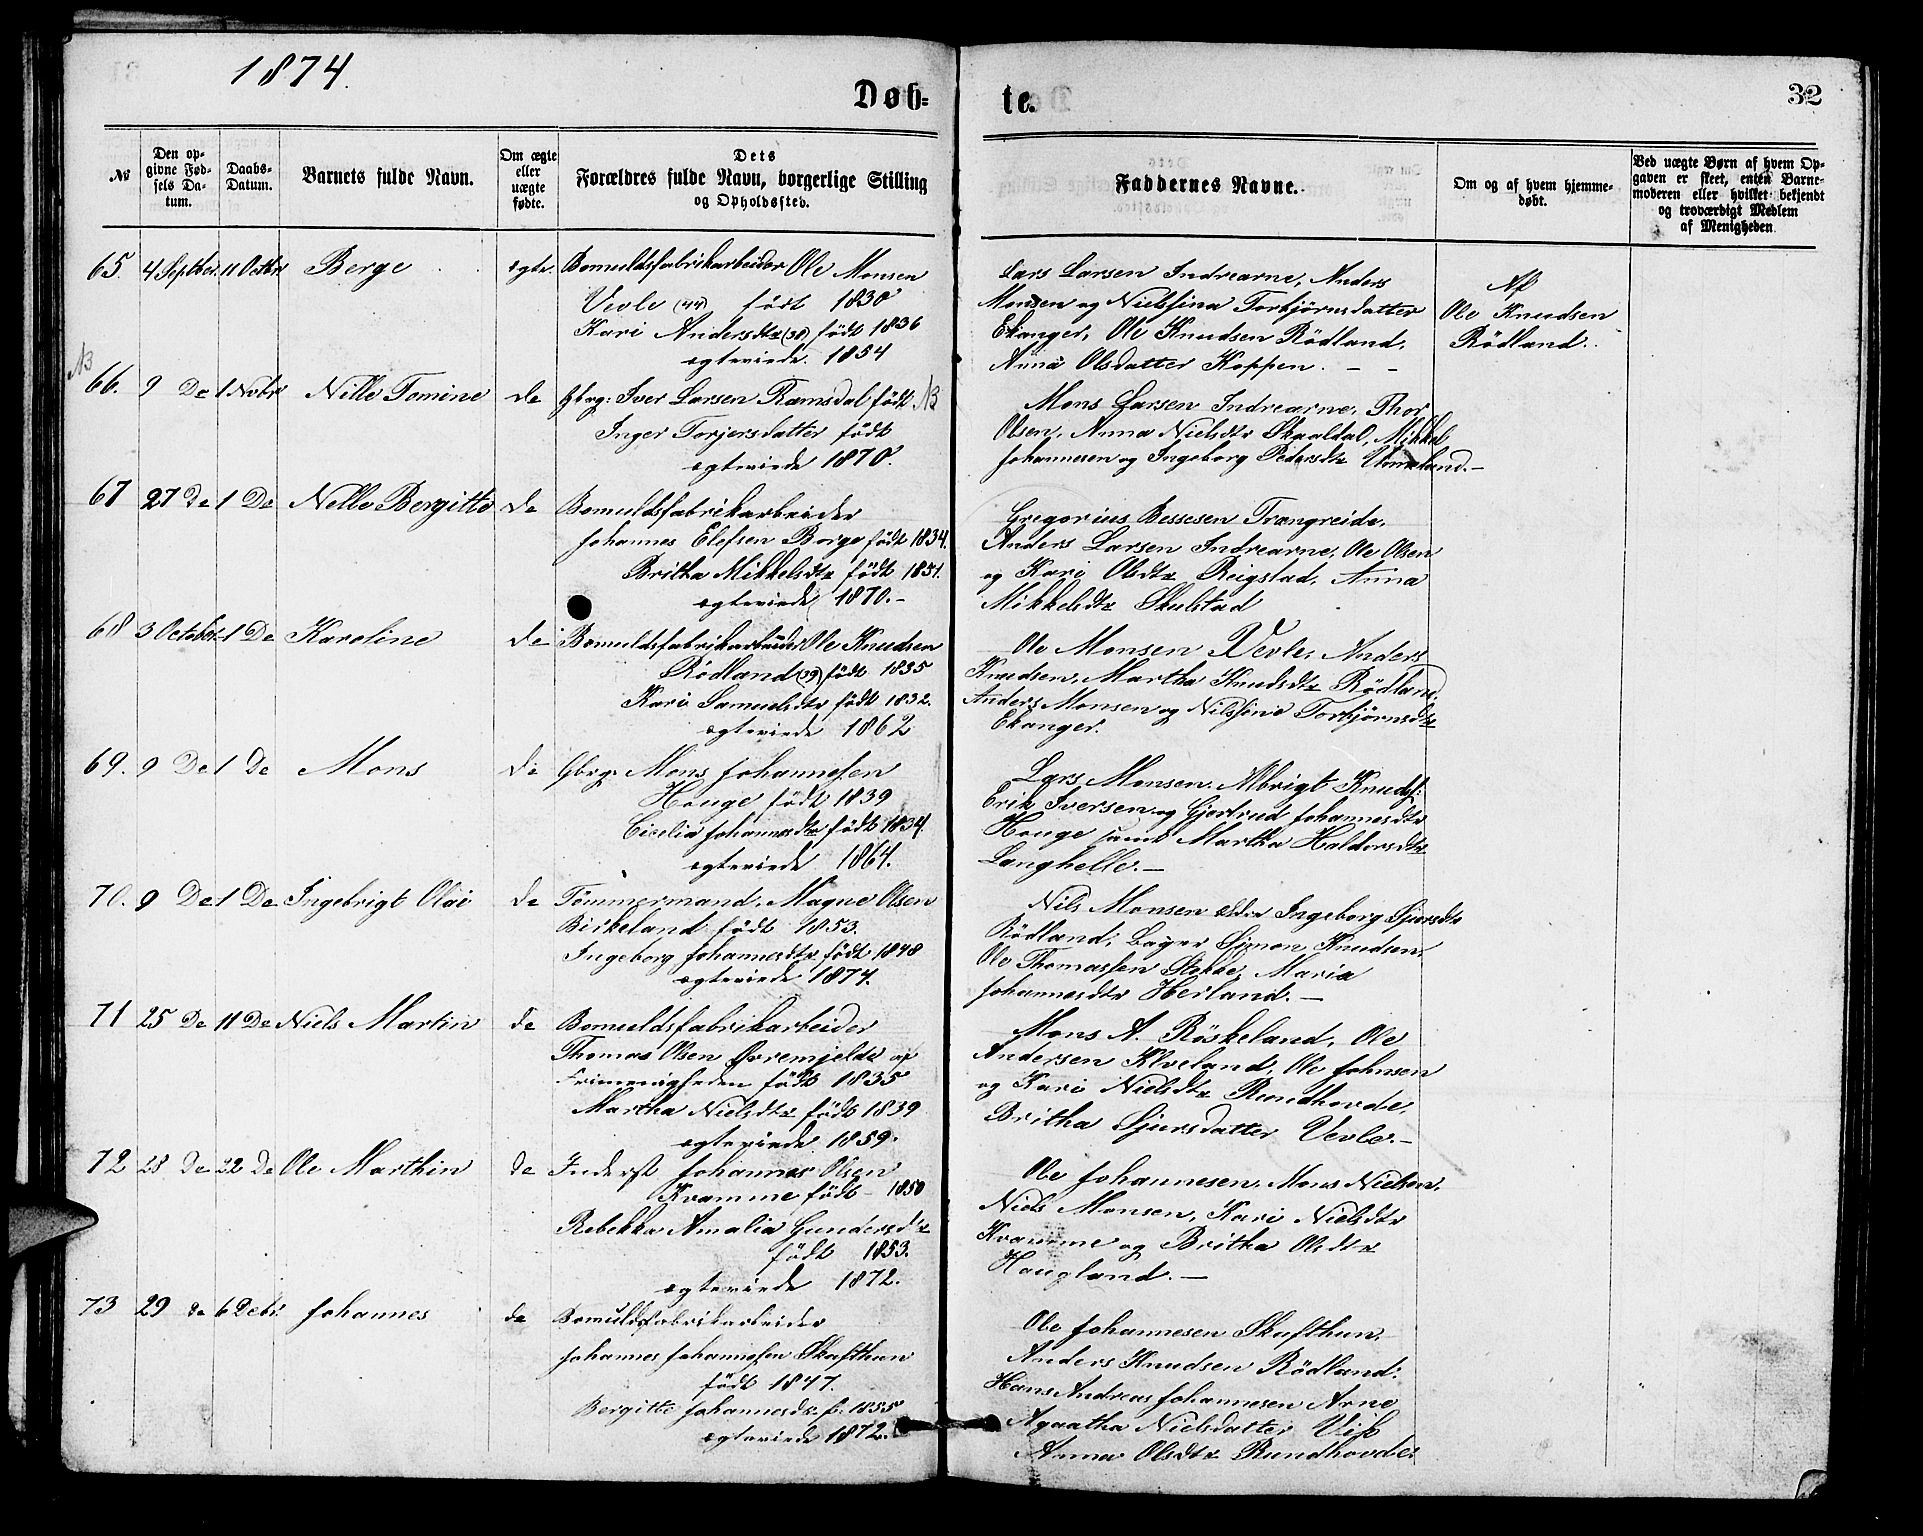 1874.
Døb=
te.
32
№
Den op-
givne Fød-
sels Da-
tum.
Daabs-
Datum.
Barnets fulde Navn.
Om ægte
eller
uægte
fødte.
Dets
Forældres fulde Navn, borgerlige Stilling
og Opholdssted.
Faddernes Navne.
Om og af hvem hjemme-
døbt.
Ved uægte Børn af hvem Op-
gaven er skeet, enten Barne-
moderen eller hvilket bekjendt
og troværdigt Medlem
af Menigheden.
65. 4 Septber. 11 Octbr Berge ægte. Bomuldsfabrikarbeider Ole Monsen
Vevle (44) født 1830
Kari Andersdtr (38) født 1836
ægteviede. 1854
Lars Larsen Indrearne, Anders
Monsen og Nielssina Torbjørnsdatter
Ekanger, Ole Knudsen Rödland,
Anna Olsdatter Koppen. — —
Af
Ole Knudsen
Rödland.
NB
66. 9 De 1 Novbr Nille Tomine de Gbrg: Iver Larsen Ramsdal født NB
Inger Torjersdatter født
ægteviede 1870.
Mons Larsen Indrearne, Thor
Olsen, Anna Nielsdtr Skaaldal, Mikkel
Johannesen og Ingeborg Pedersdtr Unneland.—
67 27 De 1 De Nelle Bergitte de Bomuldsfabrikarbeider
Johannes Elefsen Borge født 1834.
Britha Mikkelsdtr født 1831.
ægteviede 1870.—
Gregorius Bessesen Trængreide,
Anders Larsen Indrearne, Ole Olsen
og Kari Olsdtr Reigstad, Anna
Mikkelsdtr Skulstad
68 3 October 1 De Karoline de Bomuldsfabrikarbeider Ole Knudsen
Rødland (39) født 1835
Kari Samuelsdtr født 1832.
ægteviede 1862
Ole Monsen Vevle, Anders
Knudsen, Martha Knudsdtr Rödland.
Anders Monsen og Nilssine Torbjørnsdtr
Ekanger.
69. 9 De 1 de Mons de Gbrg: Mons Johannesen
Houge født 1839
Cicelia Johannesdtr født 1834.
ægteviede 1864.
Lars Monsen, Albrigt Knuds:
Erik Iversen og Gjertrud Johannesdtr
Houge samt Martha Haldorsdtr
Langhelle.—
70. 9 De 1 De Ingebrigt Olai de Tömmermand, Magne Olsen
Birkeland født 1853.
Ingeborg Johannesdtr født 1848
ægteviede 1874.
Nils Monsen ældre Ingeborg Sjursdtr
Rödland, Bager Simon Knudsen,
Ole Thomassen Stokke, Maria
Johannesdtr Herland.—
71 25 De 11 De Niels Martin de Bomuldsfabrikarbeider
Thomas Olsen Øvremjelde af
Frimenigheden født 1835
Martha Nielsdtr født 1839
ægteviede 1859.
Mons A. Röskeland, Ole
Andersen Kleveland, Ole Johnsen
og Kari Nielsdtr Rundhovde,
Britha Sjursdatter Vevle.—
72 28 de 22 De Ole Marthin de Inderst Johannes Olsen
Kvamme født 1850
Rebekka Amalia Gundersdtr
født 1853.
ægteviede 1872.
Ole Johannesen, Mons Nielsen,
Niels Monsen, Kari Nielsdtr
Kvamme og Britha Olsdtr
Hougland.—
73 29 de 6 Decbr. Johannes de Bomuldsfabrikarbeider
Johannes Johannesen Skafthun
født 1847.
Bergitte Johannesdtr f. 1855
ægteviede 1872.
Ole Johannesen Skafthun,
Anders Knudsen Rödland,
Hans Andreas Johannesen Arne
Agaatha Nielsdatter Vik
Anna Olsdtr Rundhovde.